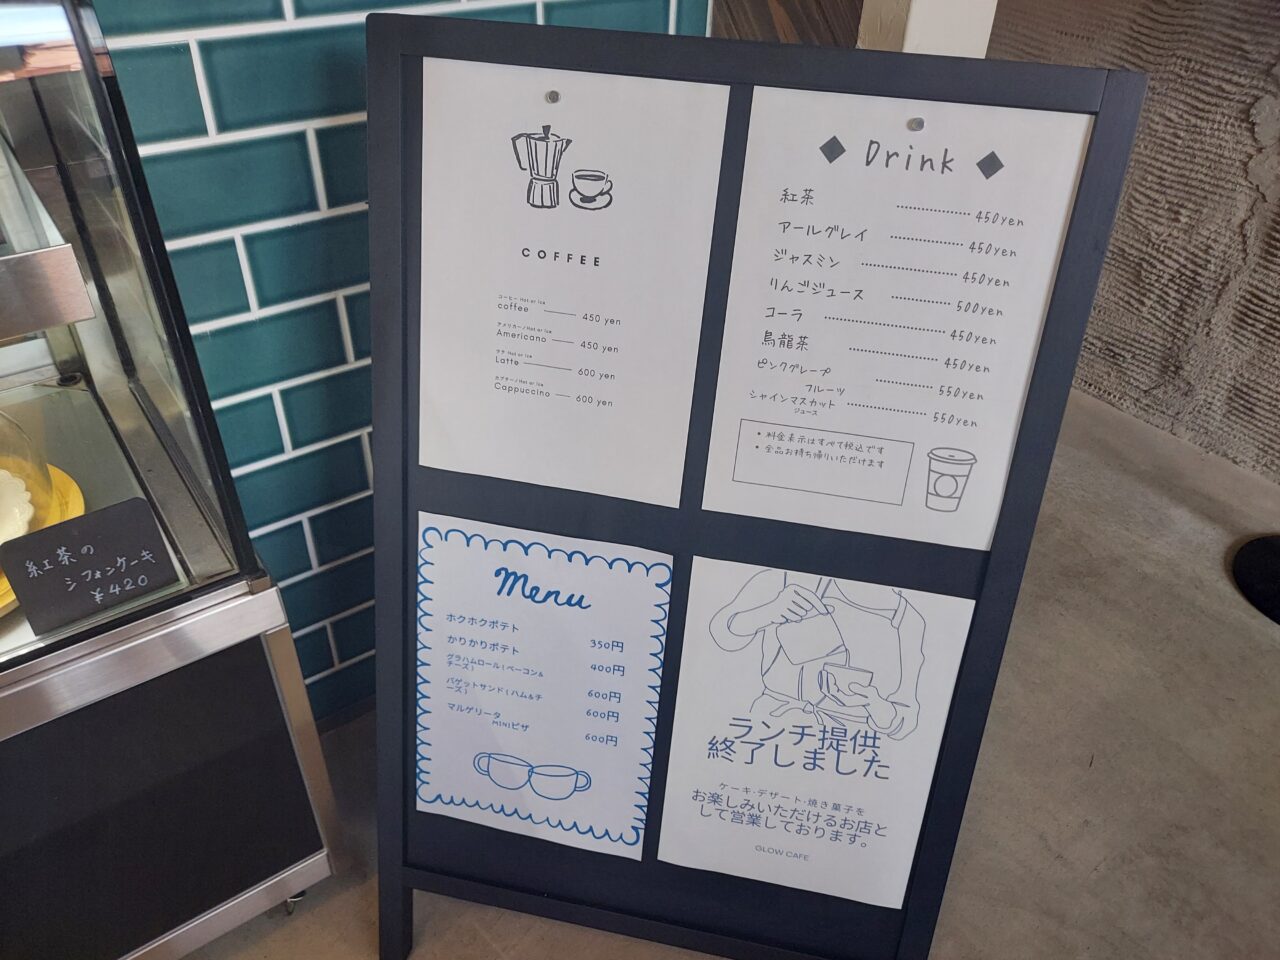 COFFEE
コーヒー Hot or Ice
coffee 450 yen
アメリカーノ Hot or Ice
Americano 450 yen
ラテ Hot or Ice
Latte 600 yen
カプチーノ Hot or Ice
Cappuccino 600 yen
◆ Drink ◆
紅茶 450yen
アールグレイ 450yen
ジャスミン 450yen
りんごジュース 500yen
コーラ 450yen
烏龍茶 450yen
ピンクグレープ
フルーツ 550yen
シャインマスカット 550yen
ジュース
• 料金表示はすべて税込です
• 全品お持ち帰りいただけます
Menu
ホクホクポテト 350円
かりかりポテト 400円
グラハムロール(ベーコン&
チーズ) 600円
バゲットサンド(ハム&チ
ーズ) 600円
マルゲリータ
MINIピザ 600円
ランチ提供
終了しました
ケーキ·デザート·焼き菓子を
お楽しみいただけるお店と
して営業しております。
GLOW CAFE
紅茶の
シフォンケーキ
¥420